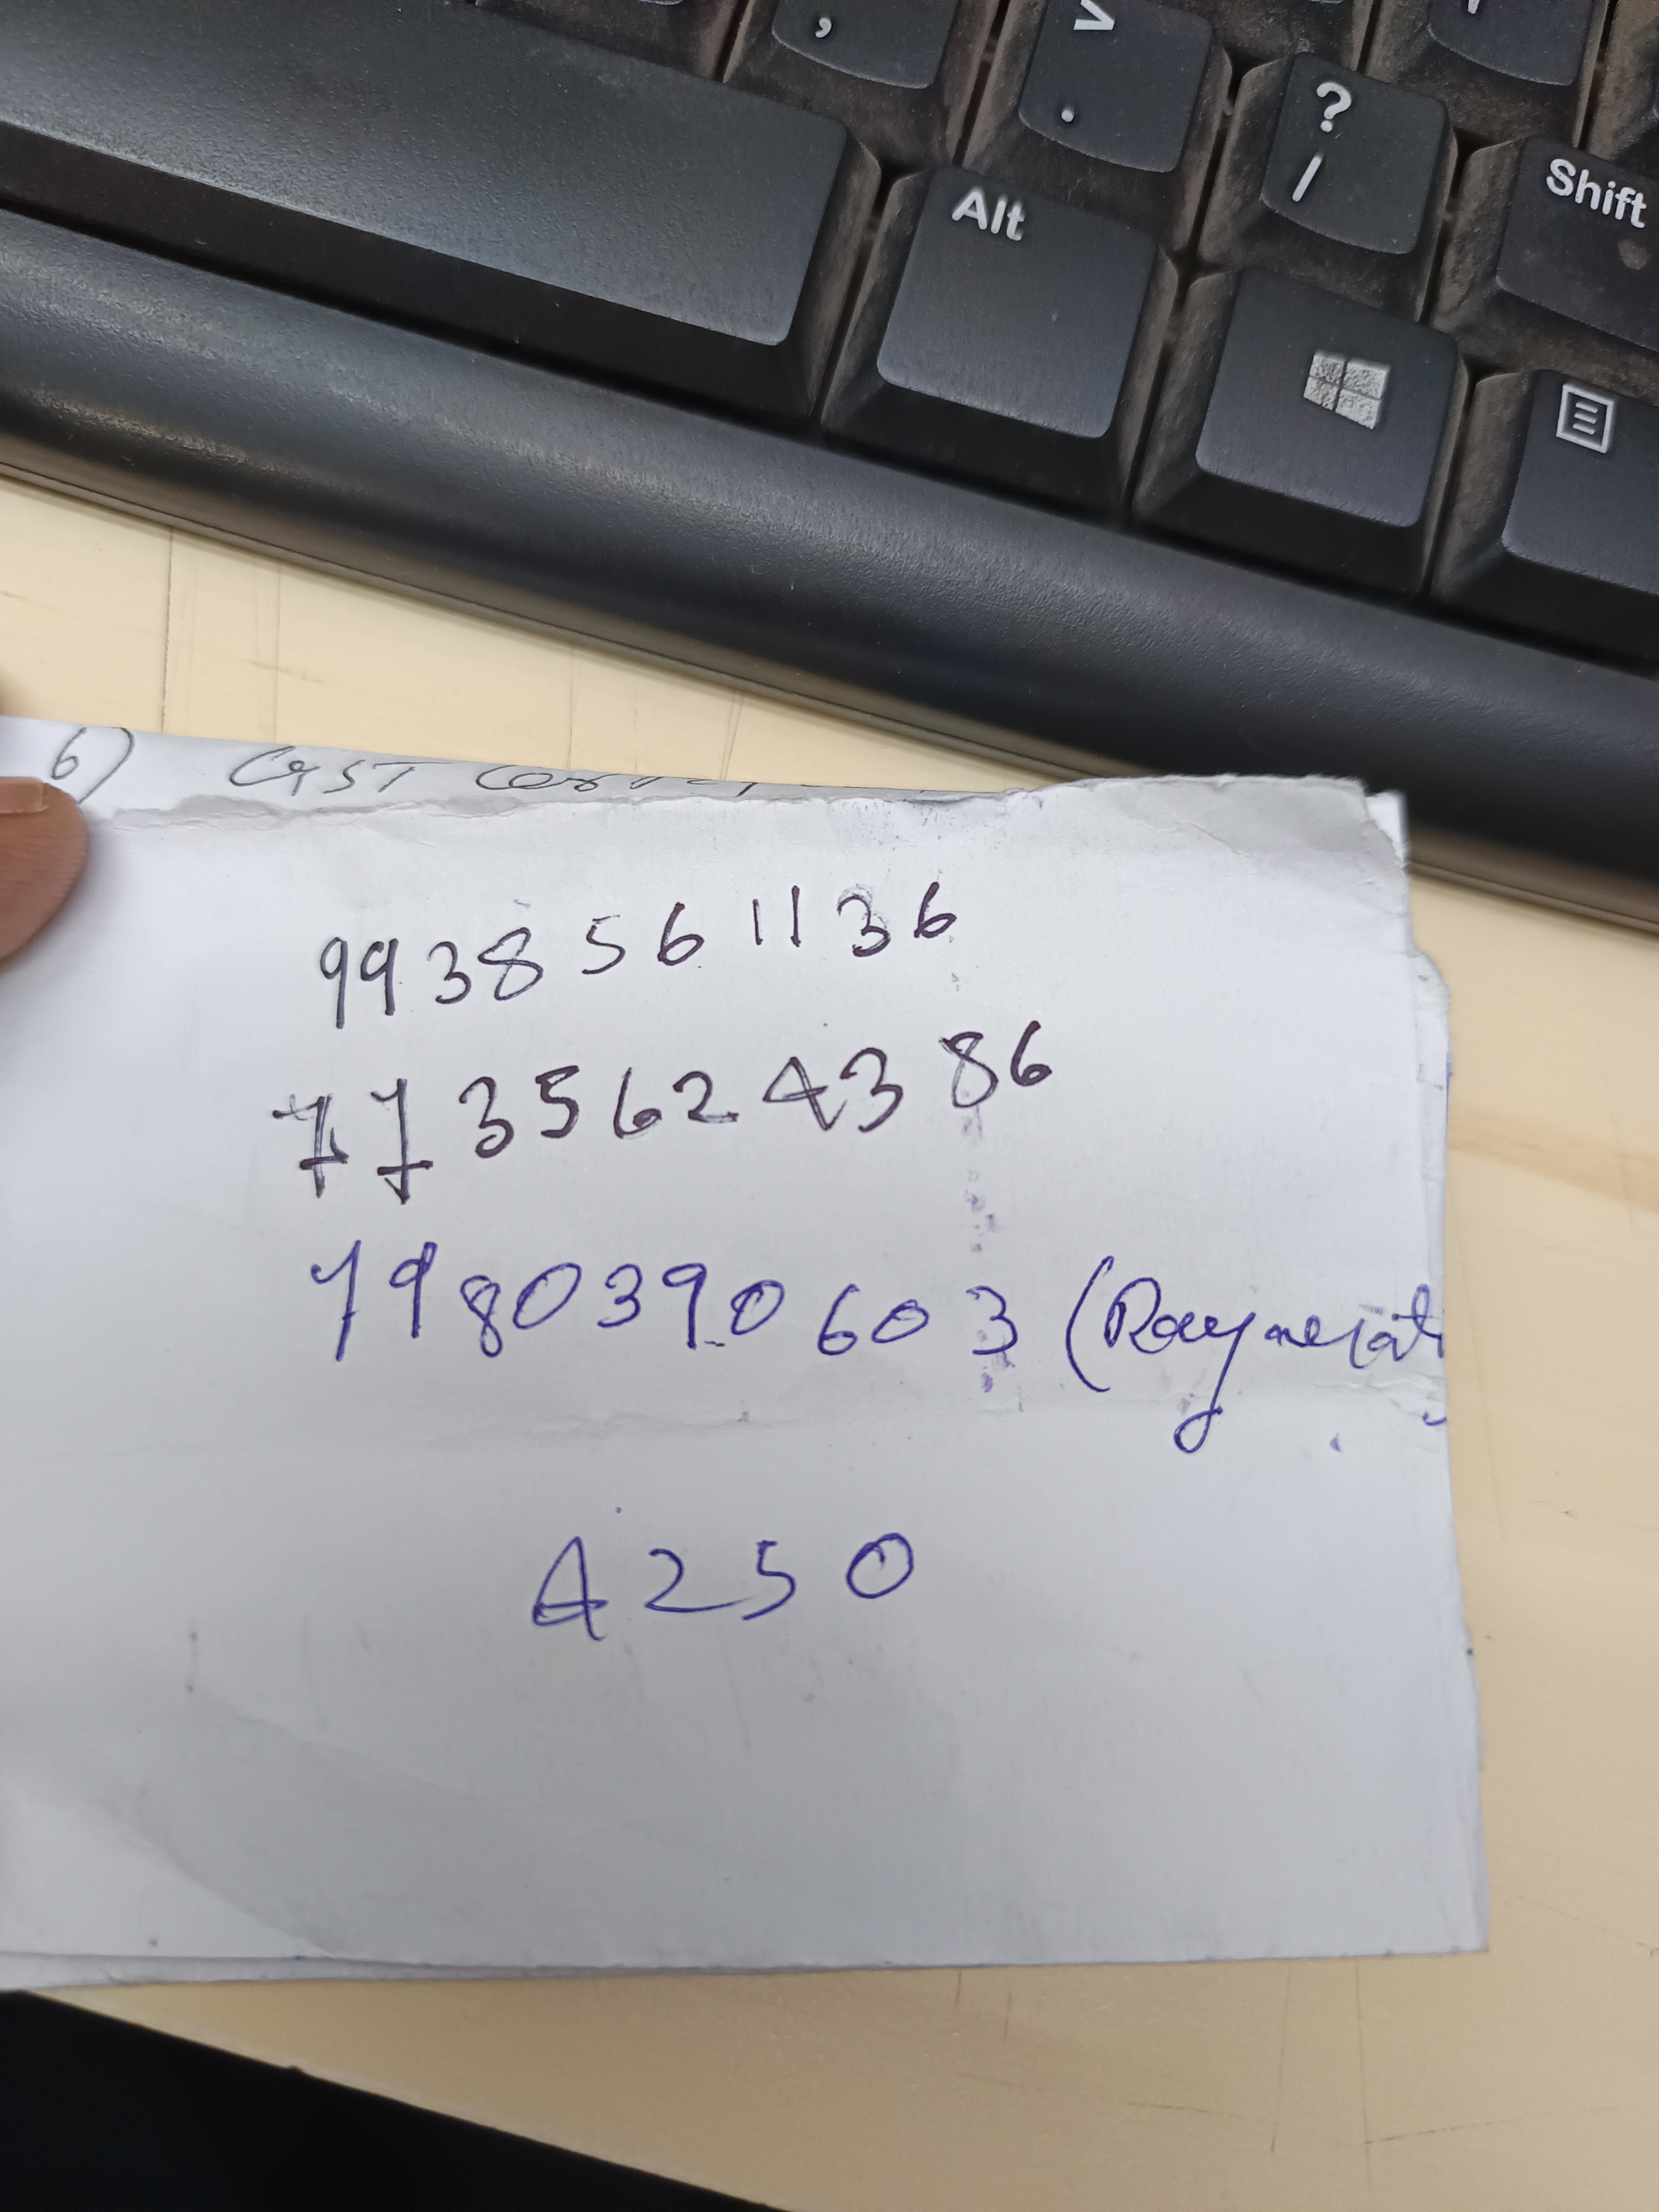 ,
>
.
?
/
Alt
Shift
6) GST
9938561136
7735624386
7980390603
4250